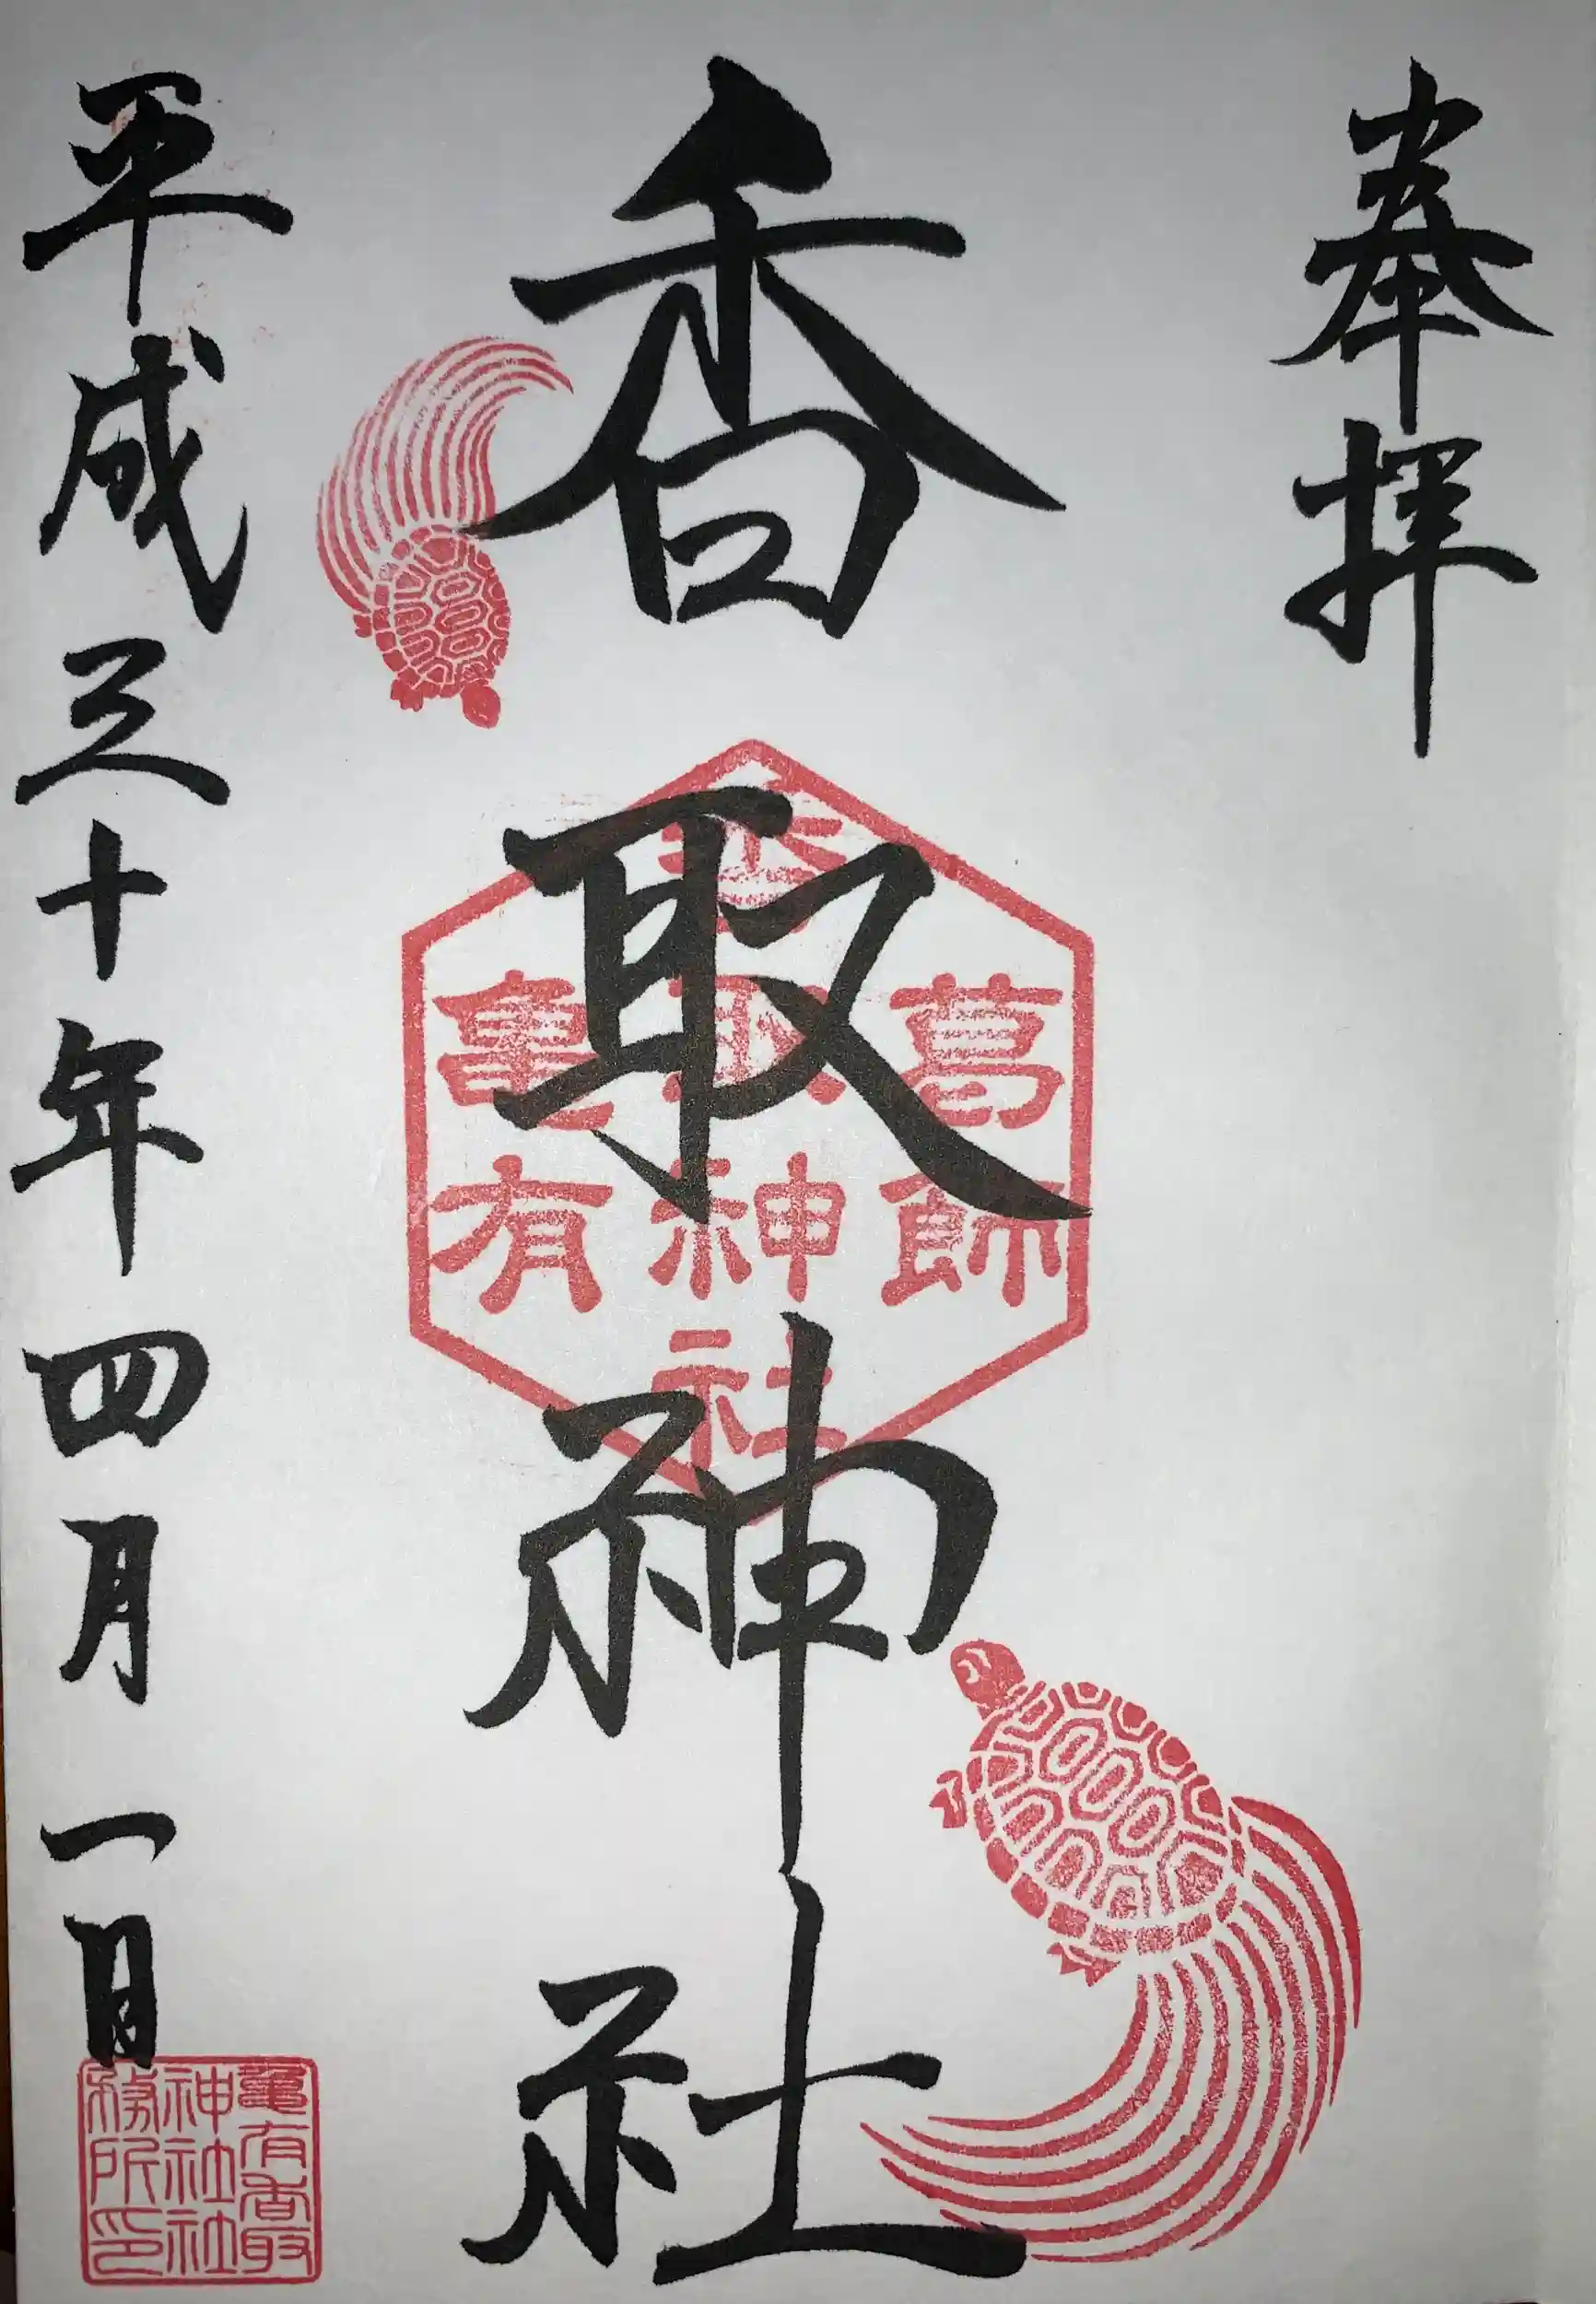 奉拝
香取神社
平成三十年四月一日
葛飾
香取神社
亀有
亀有香取
神社社
務所印